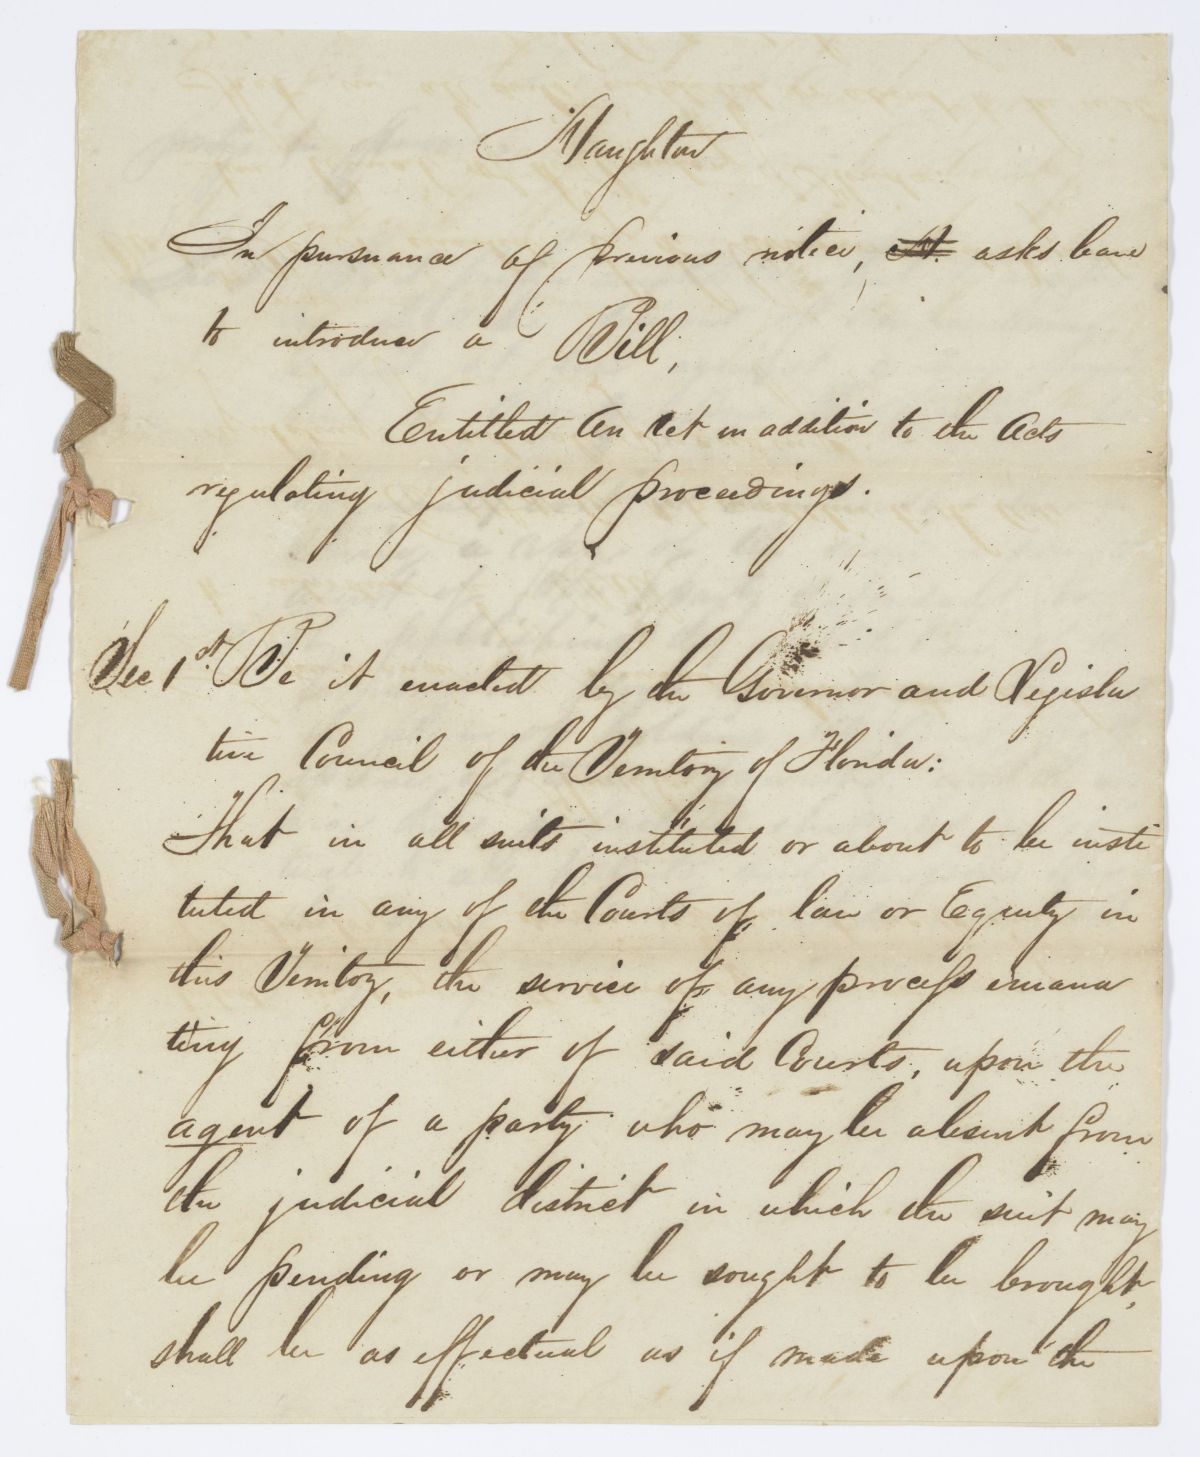 In pursuance of previous notice, asks leave
to introduce a Bill,
Entitled An Act in addition to the Acts
regulating judicial proceedings.
Sec 1st. Be it enacted by the Governor and Legisla
tive Council of the Territory of Florida:
That in all suits instituted or about to be insti
tuted in any of the Courts of law or Equity in
this Territory, the service of any process emana
ting from either of said Courts, upon the
agent of a party who may be absent from
the judicial district in which the suit may
be pending or may be sought to be brought,
shall be as effectual as if made upon the